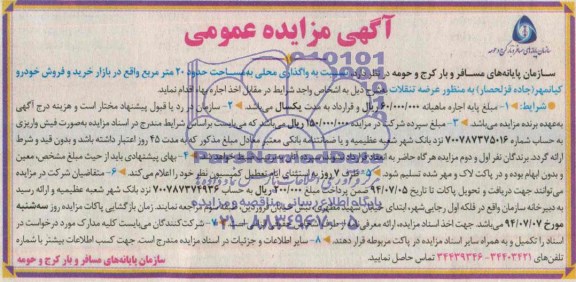 آگهی مزایده عمومی
سازمان پایانه‌های مسافر و بار کرج و حومه
سازمان پایانه‌های مسافر و بار کرج و حومه در نظر دارد نسبت به واگذاری محلی به مساحت حدود ۲۰ متر مربع واقع در بازار خرید و فروش خودرو
کیانمهر (جاده قزلحصار) به منظور عرضه تنقلات به شرح ذیل به اشخاص واجد شرایط در مقابل اخذ اجاره بهاء اقدام نماید.
شرایط: ۱- مبلغ پایه اجاره ماهیانه ۶۰/۰۰۰/۰۰۰ ریال و قرارداد به مدت یکسال می‌باشد. ۲- سازمان در رد یا قبول پیشنهاد مختار است و هزینه درج آگهی
به‌عهده برنده مزایده می‌باشد. ۳- مبلغ سپرده شرکت در مزایده ۱۵۰/۰۰۰/۰۰۰ ریال می‌باشد که می‌بایست براساس شرایط مندرج در اسناد مزایده به‌صورت فیش واریزی
به حساب شماره ۷۰۰۷۸۷۳۷۵۰۱۶ نزد بانک شهر شعبه عظیمیه و یا ضمانتنامه بانکی معتبر معادل مبلغ مذکور که به مدت ۴۵ روز اعتبار داشته باشد و بدون قید و شرط
ارائه گردد. برندگان نفر اول و دوم مزایده هر گاه حاضر به انعقاد قرارداد
۴- بهای پیشنهادی باید از حیث مبلغ مشخص، معین
و بدون ابهام بوده و در پاکت لاک و مهر شده تسلیم شود. ۵- ظرف ۷ روز به استثنای ایام تعطیل کمیسیون نظر خود را اعلام می‌کند. ۶- متقاضیان شرکت در مزایده
می‌توانند جهت دریافت و تحویل پاکات تا تاریخ ۹۴/۰۷/۰۵ ضمن پرداخت مبلغ ۲۰۰/۰۰۰ ریال به حساب ۷۰۰۷۸۷۳۷۴۹۳۶ نزد بانک شهر شعبه عظیمیه و ارائه رسید
به دبیرخانه سازمان واقع در فلکه اول رجایی‌شهر، ابتدای خیابان شهید مطهری، نبش خیابان فروردین، طبقه سوم مراجعه نمایند. زمان بازگشایی پاکات روز سه‌شنبه
مورخ ۹۴/۰۷/۰۷ می‌باشد. جهت اخذ اسناد مزایده، ارائه معرفی‌نامه
۷- شرکت‌کنندگان می‌بایست کلیه مدارک مورد درخواست در
اسناد را تکمیل و به همراه سایر اسناد مزایده در پاکت مربوطه قرار دهند. ۸- سایر اطلاعات و جزئیات در اسناد مزایده مندرج است. جهت کسب اطلاعات بیشتر با شماره
تلفن‌های ۳۴۴۰۳۴۲۱ - ۳۴۴۳۹۳۴۶ تماس حاصل نمایید.
سازمان پایانه‌های مسافر و بار کرج و حومه
پایگاه اطلاع رسانی مناقصه و مزایده
۰۲۱-۸۸۳۴۹۶۷۰-۵